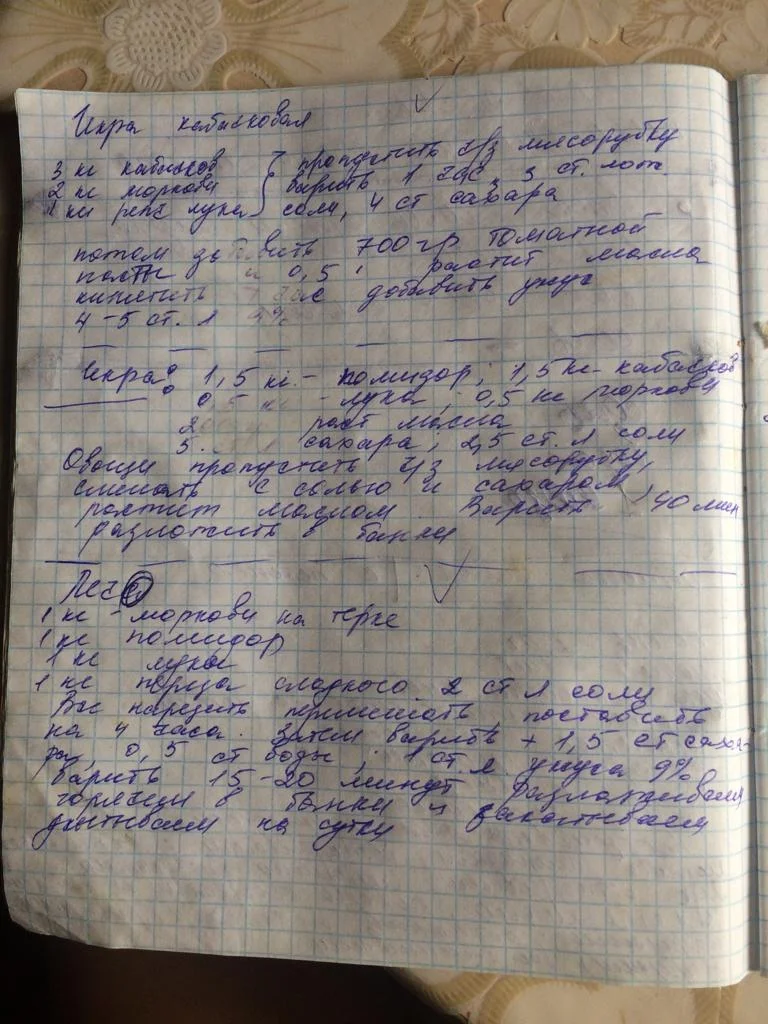 Икра кабачковая
3 кг кабачков } пропустить ч/з мясорубку
2 кг моркови варить 1 час, 3 ст. лож.
1 кг репч лука соли, 4 ст сахара
потом 700 гр томатной
пасты и 0,5 растит масла
кипятить час добавить уксус
4-5 ст. л 9%
Икра: 1,5 кг. - помидор; 1,5 кг - кабачков
0,5 кг - лука; 0,5 кг моркови
раст масла
5 сахара; 2,5 ст. л соли
Овощи пропустить ч/з мясорубку,
смешать с солью и сахаром,
растит маслом. Варить 40 мин
разложить в банки
1 кг - моркови на терке
1 кг помидор
1 кг лука
1 кг перца сладкого. 2 ст л соли
Все нарезать перемешать, поставить
на 4 часа. Затем варить + 1,5 ст саха-
ра, 0,5 ст воды, 1 ст л уксуса 9%
варить 15-20 минут. Разлаживаем
горячим в банки и закатываем
укутываем на сутки